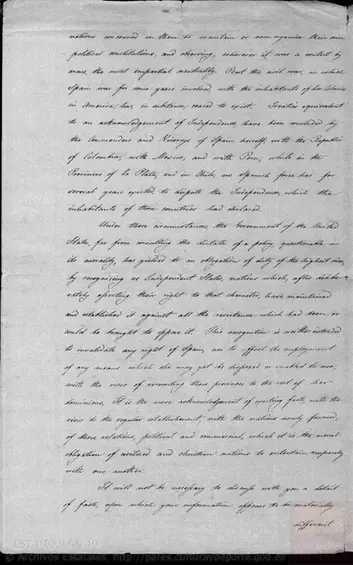 nations concerned in them to maintain or new organize their own
political constitutions, and observing, wherever it was a contest by
arms, the most impartial neutrality. But the civil war, in which
Spain was for some years involved with the inhabitants of her Colonies
in America, has, in substance, ceased to exist. Treaties equivalent
to an acknowledgement of Independence, have been concluded by
the Commanders and Viceroys of Spain herself, with the Republic
of Colombia, with Mexico, and with Peru, while in the
Provinces of La Plata, and in Chile, no Spanish force has for
several years existed to dispute the Independence, which the
inhabitants of those countries had declared.
Under these circumstances, the Government of the United
States, far from consulting the dictates of a policy, questionable in
its morality, has yielded to an obligation of duty of the highest order,
by recognizing as Independent States, nations which, after deliber-
ately asserting their right to that character, have maintained
and established it against all the resistance which had been or
could be brought to oppose it. This recognition is neither intended
to invalidate any right of Spain, nor to affect the employment
of any means which she may yet be disposed or enabled to use,
with the view of reuniting those provinces to the rest of her
dominions. It is the mere acknowledgment of existing facts, with the
view to the regular establishment, with the nations newly formed,
of those relations, political and commercial, which it is the moral
obligation of civilized and christian nations to entertain reciprocally
with one another.
It will not be necessary to discuss with you a detail
of facts, upon which your information appears to be materially
different